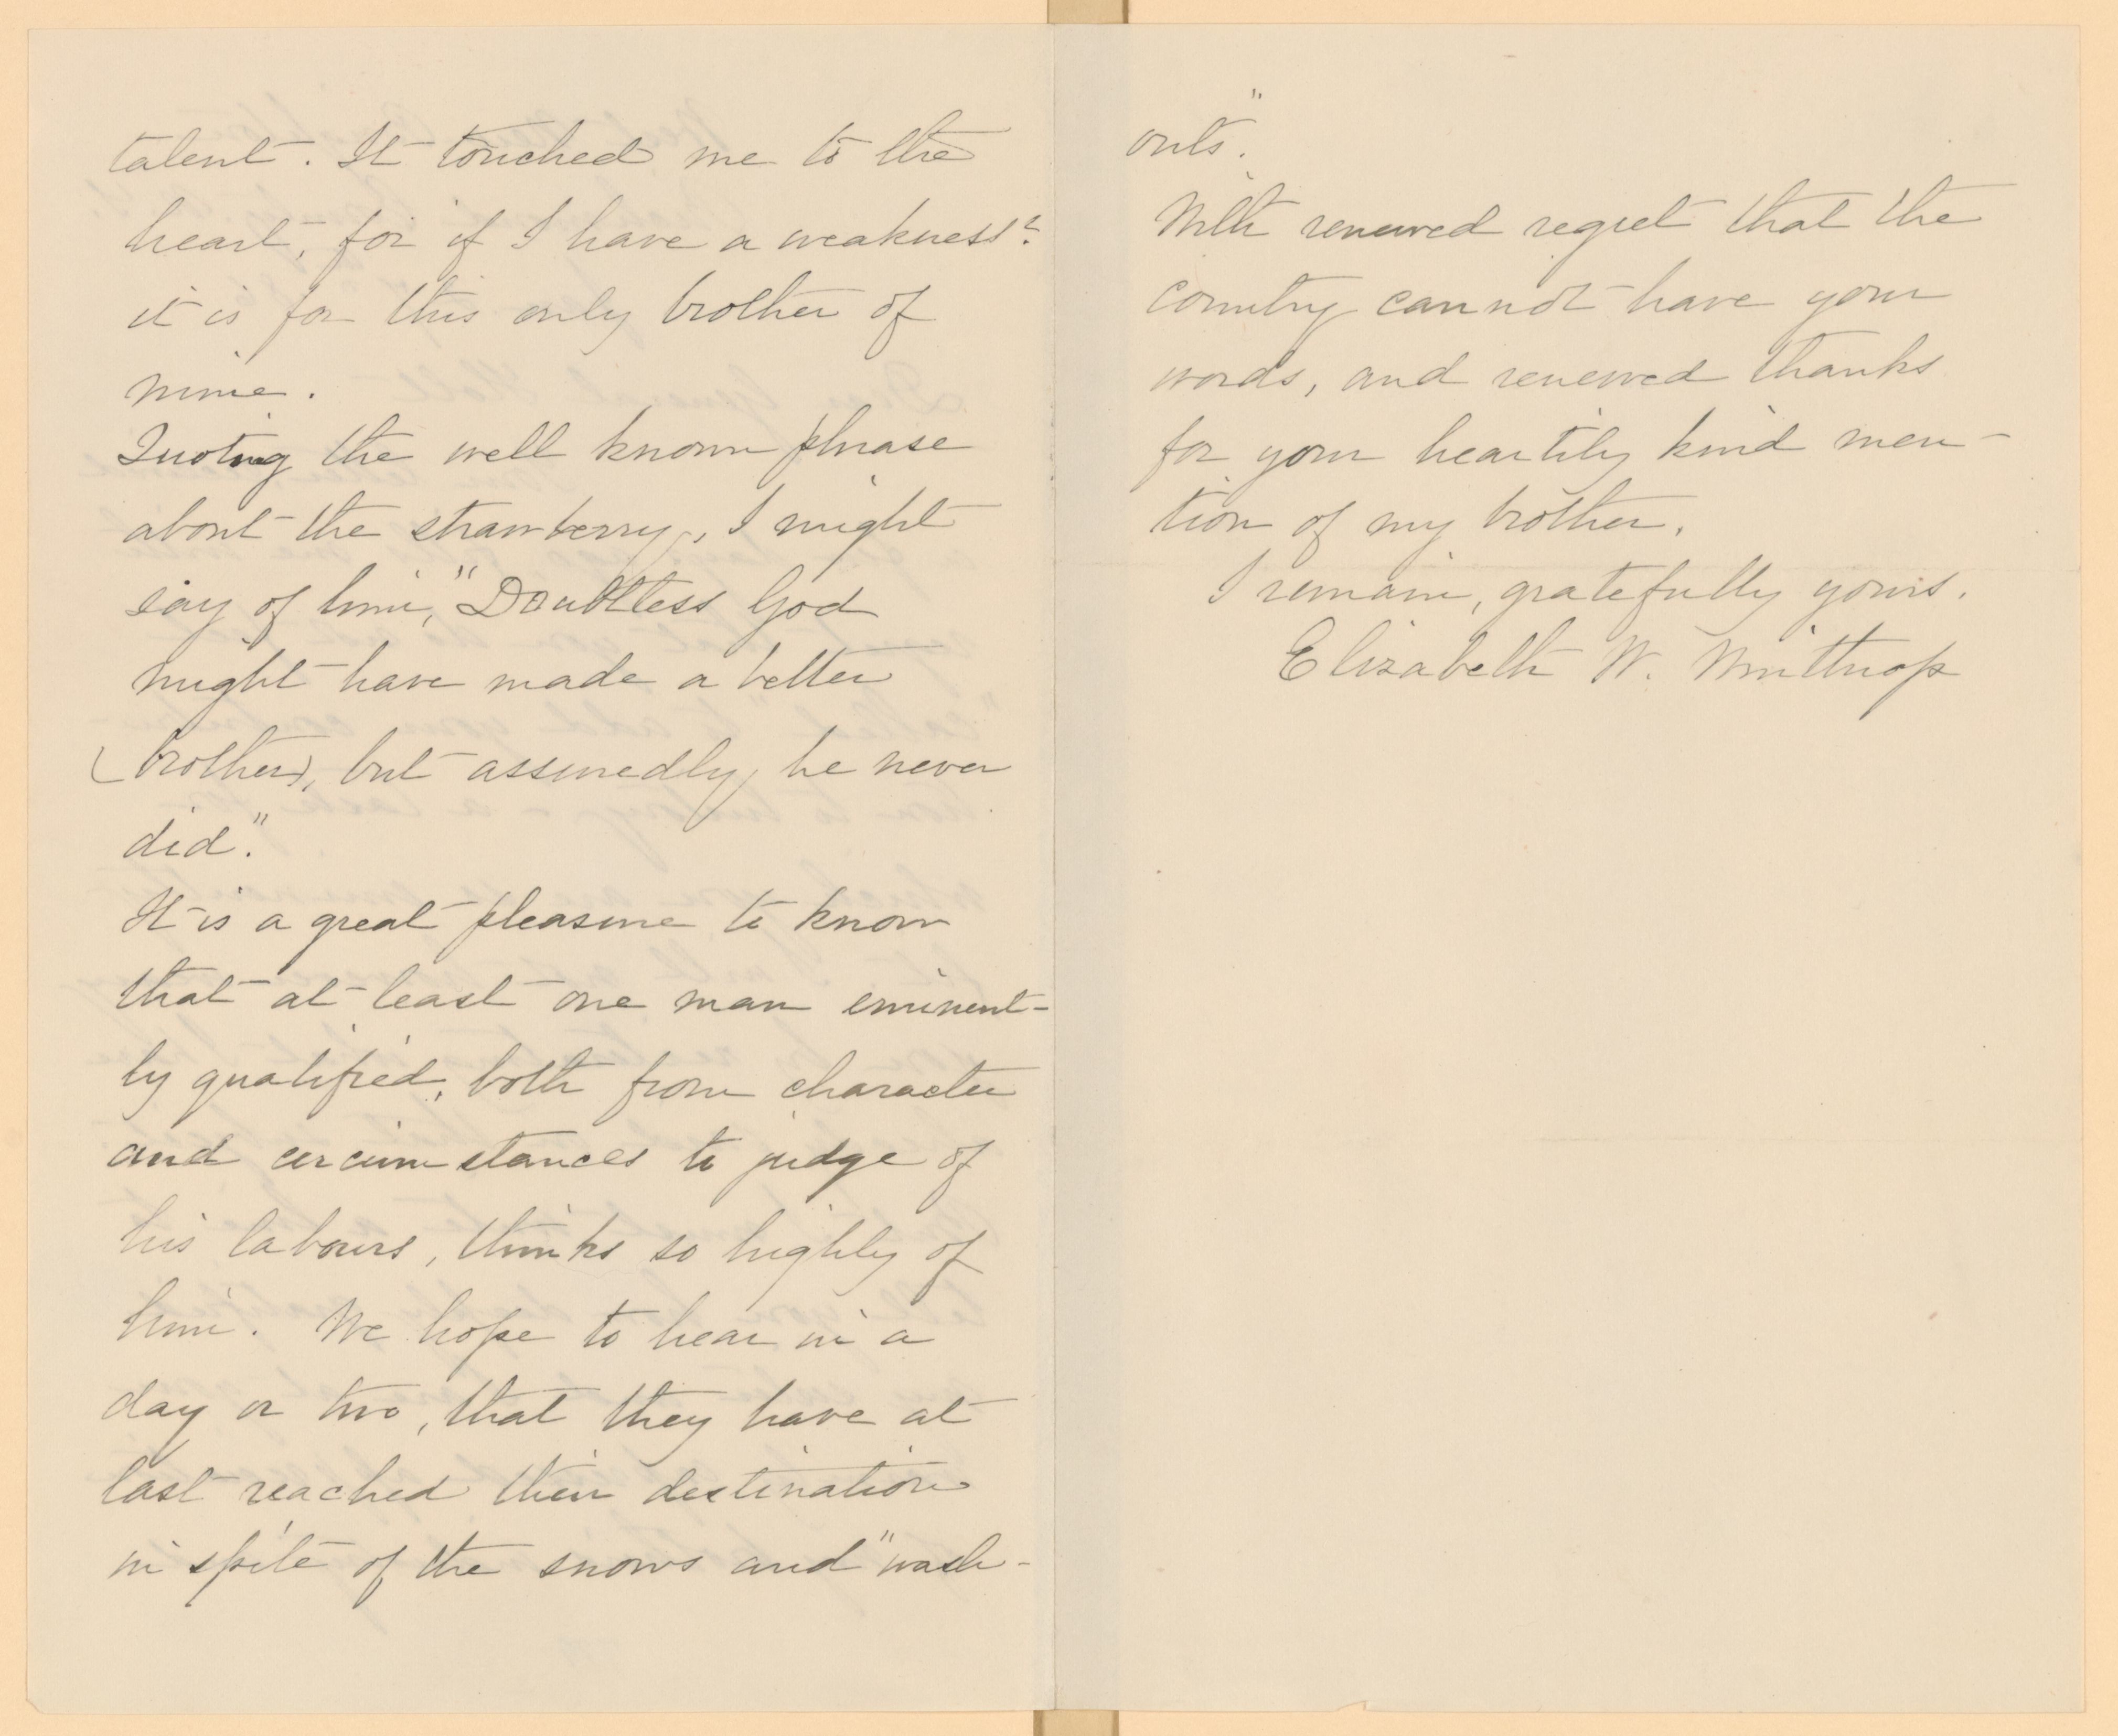 talent. It touched me to the
heart, for if I have a weakness
it is for this only brother of
mine.
Quoting the well known phrase
about the strawberry, I might
say of him, "Doubtless God
might have made a better
(brother), but assuredly, he never
did."
It is a great pleasure to know
that at least one man eminent-
ly qualified, both from character
and circumstances to judge of
his labours, thinks so highly of
him. We hope to hear in a
day or two, that they have at
last reached their destination
in spite of the snows and "wash-
outs".
With renewed regret that the
country cannot have your
words, and renewed thanks
for your heartily kind men-
tion of my brother,
I remain, gratefully yours.
Elizabeth W. Winthrop